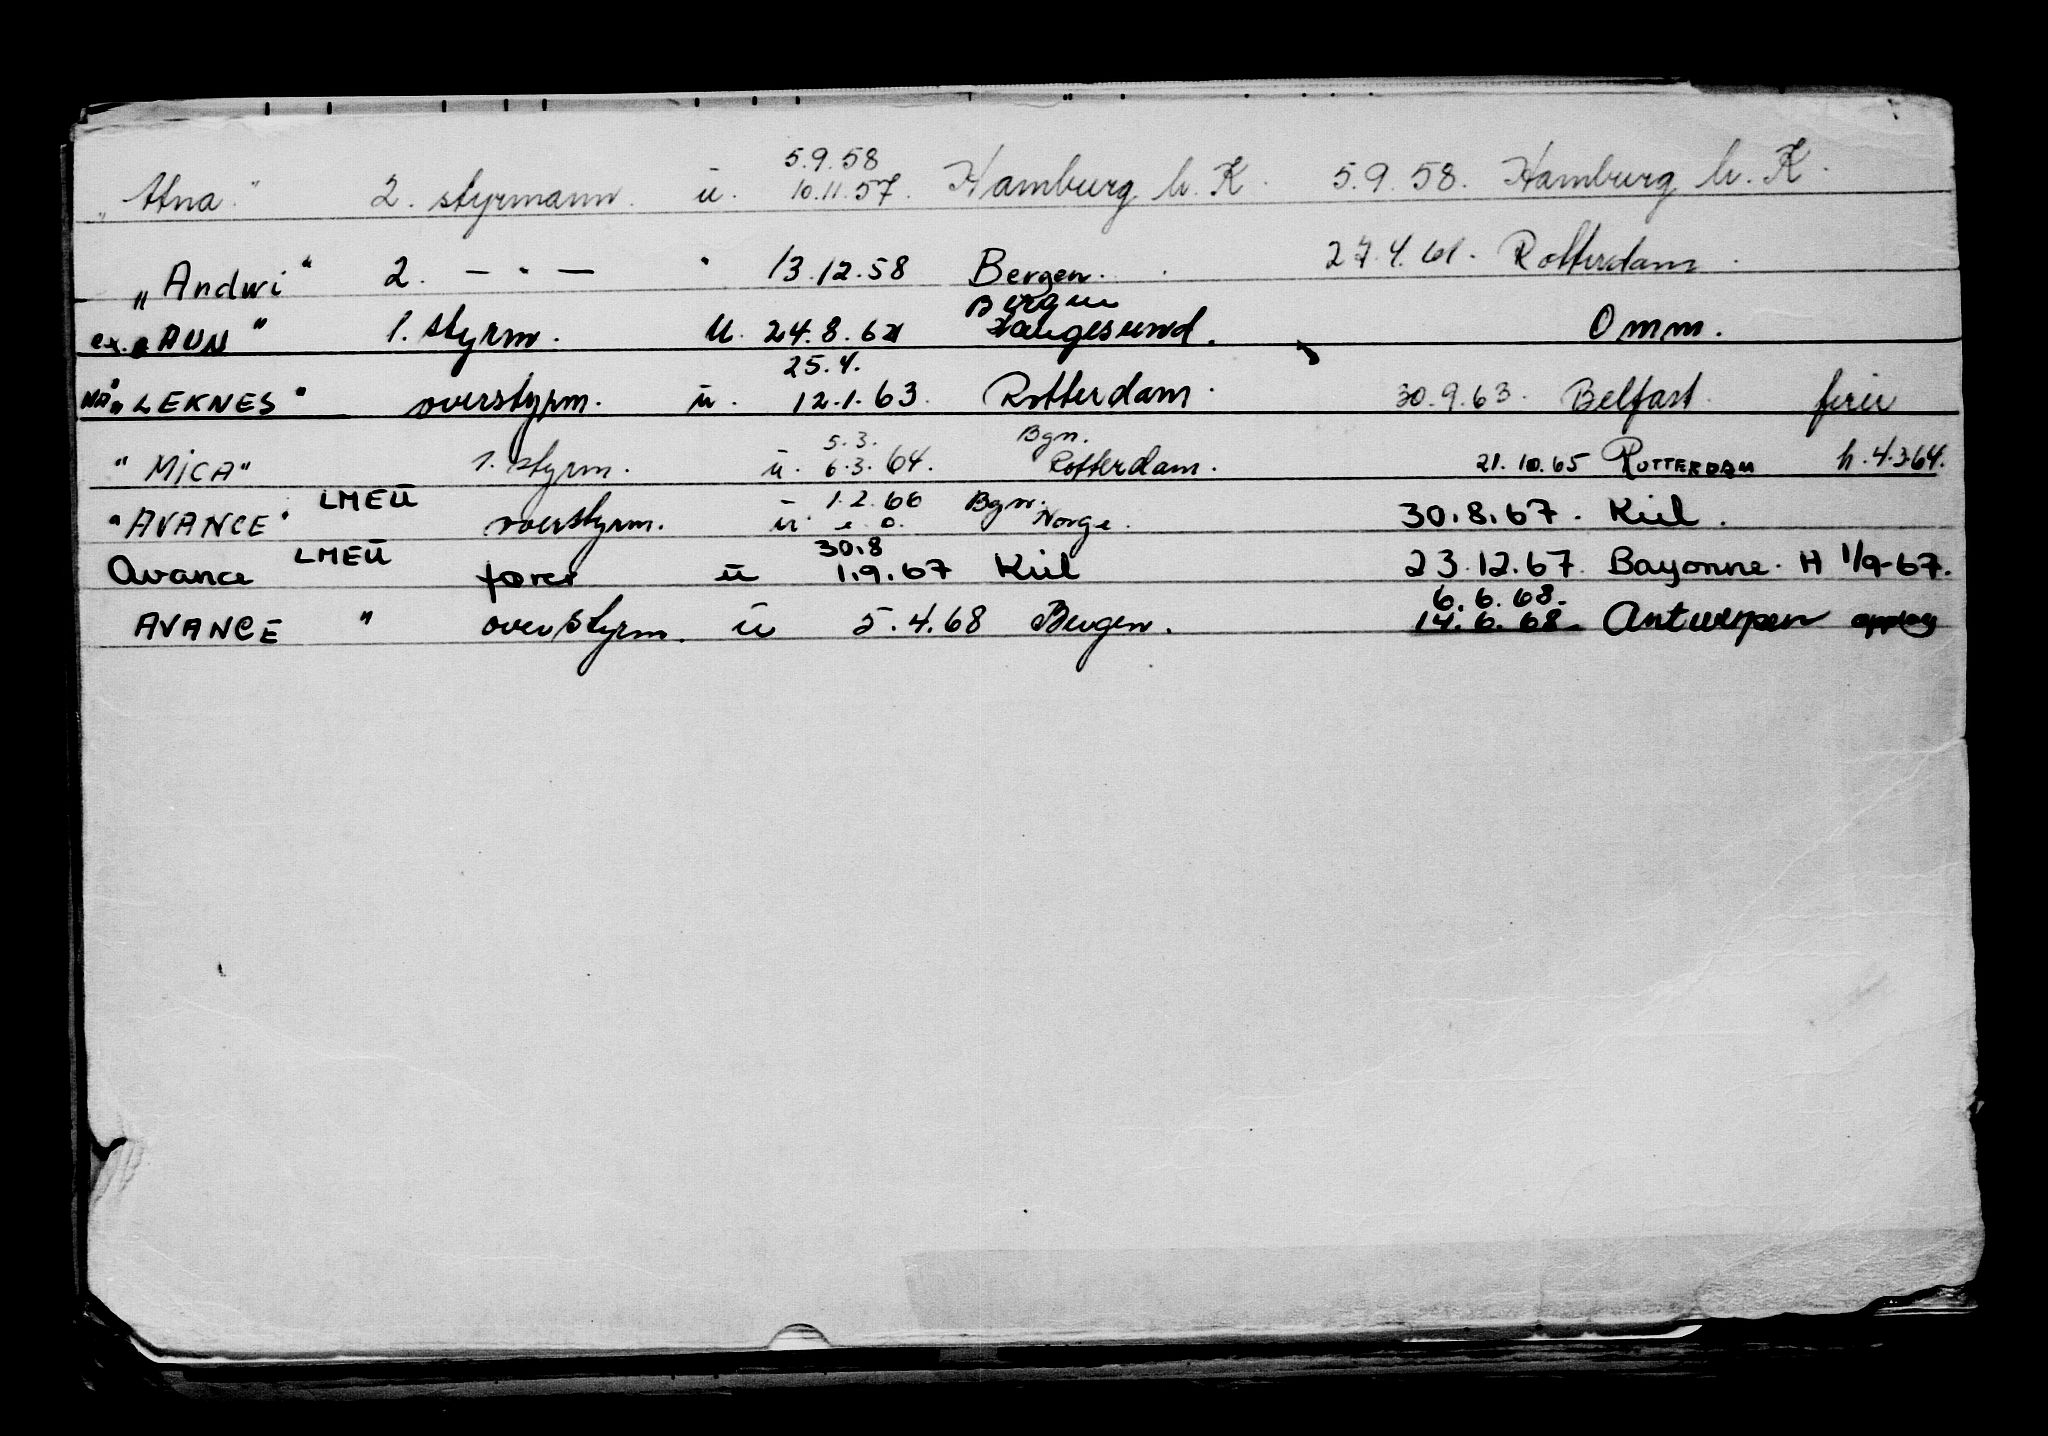 5.9.58
„Utna" 2. styrmann. u. 10.11.57. Hamburg h. K. 5.9.58. Hamburg h. K.
„Andwi" 2. — " — " 13.12.58 Bergen. 27.4.61. Rotterdam.
Bergen
ex. AUN" 1. styrm. U. 24.8.62 Haugesund. Omm.
25.4.
nå „LEKNES" overstyrm. u. 12.1.63. Rotterdam. 30.9.63. Belfast. ferie
5.3. Bgn.
"MICA" 1. styrm. u. 6.3.64. Rotterdam. 21.10.65 ROTTERDAM h. 4.3.64.
LMEU 1.2.66 Bgn.
"AVANCE" overstyrm. u. e. o. Norge. 30.8.67. Kiel.
LMEU 30.8
Avance fører u 1.9.67 Kiel 23.12.67. Bayonne. H 1/9-67.
6.6.68.
AVANCE " overstyrm. u 5.4.68 Bergen. 14.6.68. Antwerpen opplag